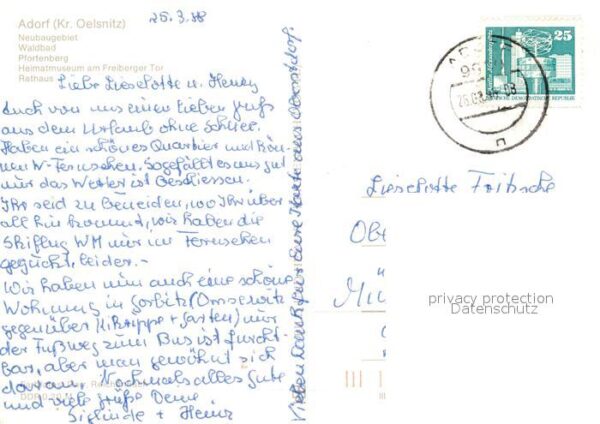 Adorf (Kr. Oelsnitz)
Neubaugebiet
Waldbad
Pfortenberg
Heimatmuseum am Freiberger Tor
Rathaus
25.3.88
Liebe Lieselotte u. Henry
Auch von uns einen lieben Gruß
aus dem Urlaub ohne Schnee.
Haben ein schönes Quartier und kön-
nen W-Fernsehen. So gefällt es uns gut
nur das Wetter ist beschiessen.
Ihr seid zu beneiden, wo Ihr über
all hin kommt, wir haben die
Skiflug WM nur im Fernsehen
geguckt, leider.-
Wir haben nun auch eine schöne
Wohnung in Gorbitz (Omsewitz
gegenüber Ki Krippe + Garten) nur
der Fußweg zum Bus ist furcht-
bar, aber man gewöhnt sich
daran. Nochmals alles Gute
und viele Grüße Deine
Sieglinde + Heinz
Vielen Dank für Eure Karte aus Oberstdorf.
DDR 0,20 M
25
Lieselotte Fritsche
privacy protection
Datenschutz